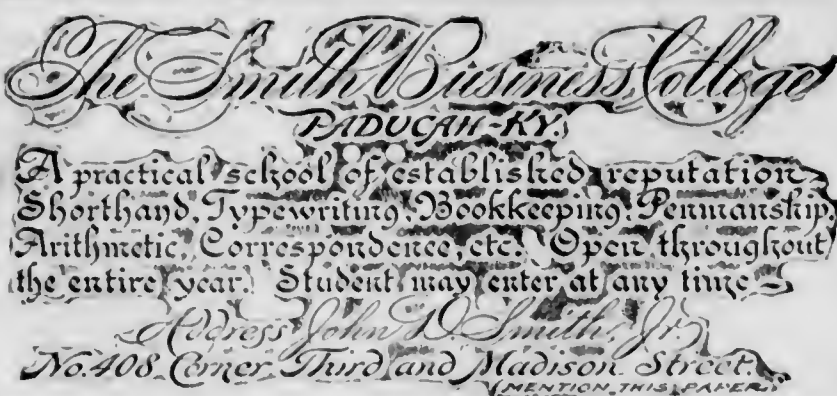 The Smith Business College
PADUCAH-KY.
A practical school of established reputation
Shorthand, Typewriting, Bookkeeping, Penmanship,
Arithmetic, Correspondence, etc. Open throughout
the entire year. Student may enter at any time
Address John D. Smith, Jr.
No. 408. Corner Third and Madison Street.
(MENTION THIS PAPER)